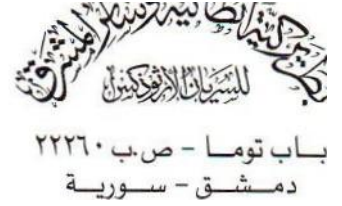 بطريركية أنطاكية وسائر المشرق
للسريان الأرثوذكس
باب توما - ص.ب ٢٢٢٦٠
دمشق - سورية